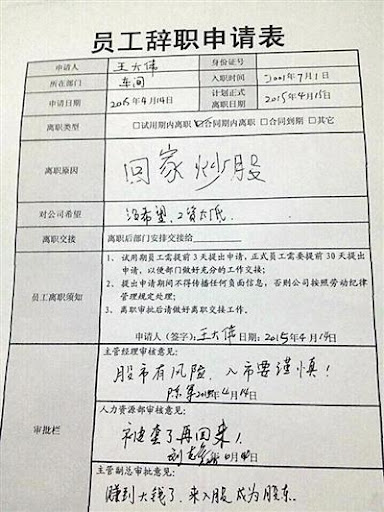 员工辞职申请表
申请人 王大伟 身份证号
所在部门 车间 入职时间 2001年7月1日
申请日期 2015年4月14日 计划正式离职日期 2015年4月15日
离职类型 □试用期内离职 ☑合同期内离职 □合同到期 □其它
离职原因 回家炒股
对公司希望 没希望,工资太低.
离职交接 离职后部门安排交接给
员工离职须知
1、试用期员工需提前3天提出申请,正式员工需要提前30天提出
申请,以便部门做好充分的工作交接;
2、提出申请期间不得传播任何负面信息,否则公司按照劳动纪律
管理规定处理;
3、离职审批后请做好离职交接工作.
申请人(签字):王大伟 日期:2015年4月14日
审批栏
主管经理审核意见:
股市有风险,入市要谨慎!
陈军 2015年4月14日
人力资源部审核意见:
被套了再回来!
4月14日
主管副总审批意见:
赚到大钱了,来入股成为股东.